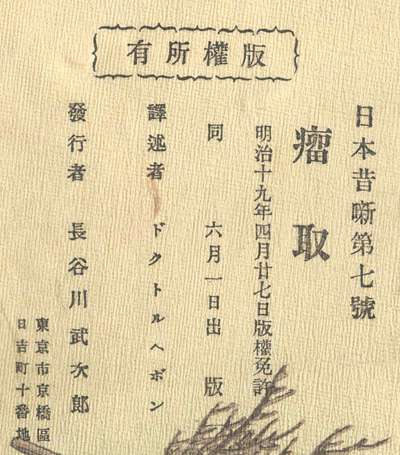 版權所有
日本昔噺第七號
瘤取
明治十九年四月廿七日版權免許
同 六月一日出版
譯述者 ドクトルヘボン
發行者 長谷川武次郎
東京市京橋區
日吉町十番地